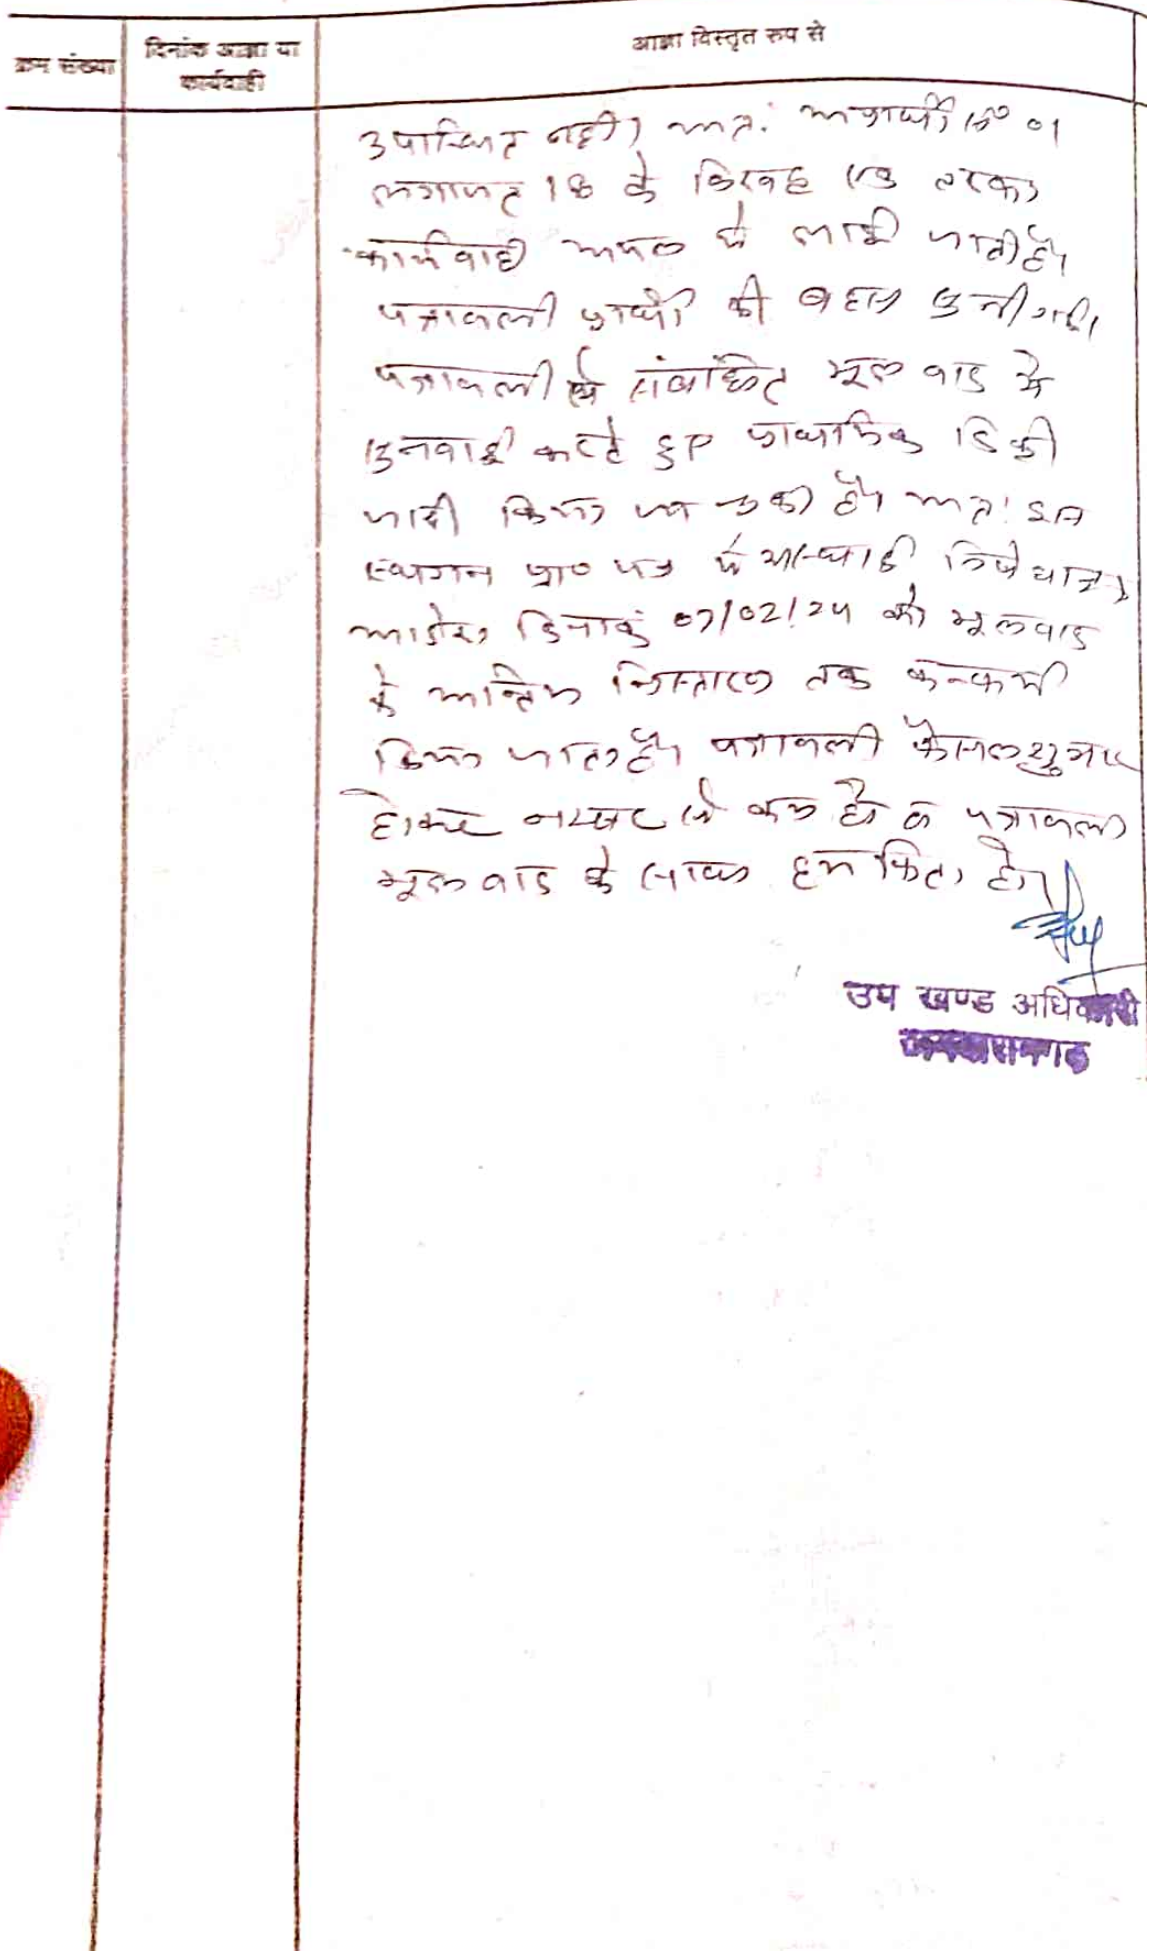 क्रम संख्या
दिनांक आज्ञा या
कार्यवाही
आज्ञा विस्तृत रुप से
उपस्थित नही। अतः अप्रार्थी सं० 01
लगायत 18 के विरुद्ध एक तरफा
कार्यवाही अमल में लाई जाती है।
पत्रावली प्रार्थी की बहस सुनी गई।
पत्रावली से संबंधित मूल वाद मे
सुनवाई करते हुए प्राथमिक डिक्री
जारी किया जा चुकी है। अतः
स्थगन प्रा० पत्र में अस्थाई निषेधाज्ञा
आदेश दिनांक 07/02/24 को मूलवाद
के अन्तिम निस्तारण तक कन्फर्म
किया जाता है। पत्रावली फैसल शुमार
होकर नम्बर से कम हो व पत्रावली
मूल वाद के साथ हम किता हो।
उप खण्ड अधिकारी